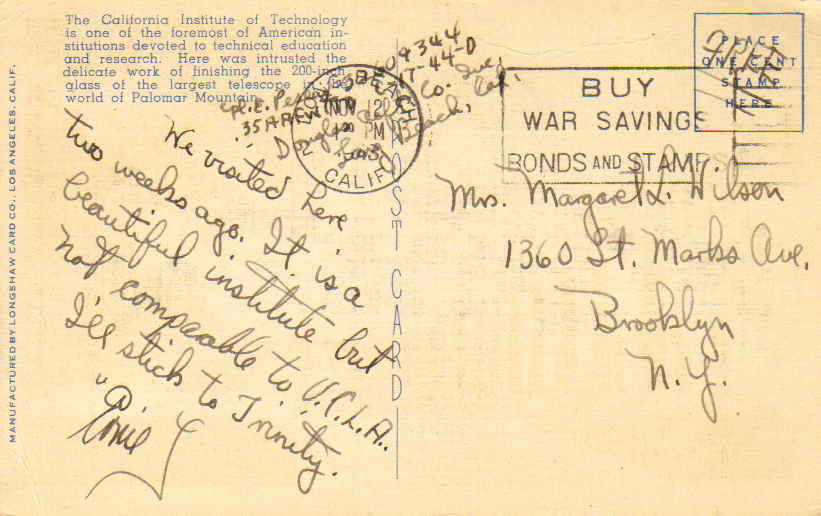 The California Institute of Technology
is one of the foremost of American in-
stitutions devoted to technical education
and research. Here was intrusted the
delicate work of finishing the 200-inch
glass of the largest telescope in the
world of Palomar Mountain.
MANUFACTURED BY LONGSHAW CARD CO., LOS ANGELES, CALIF.
17-44-D
Co.
Long Beach,
Cal.
LONG BEACH
NOV 20
PM
CALIF
BUY
WAR SAVINGS
BONDS AND STAMPS
Free
PLACE
ONE CENT
STAMP
HERE
POST CARD
We visited here
two weeks ago. It is a
beautiful institute but
not comparable to U.C.L.A..
I'll stick to Trinity.
"Ernie
Mrs. Margaret L. Wilson
1360 St. Marks Ave,
Brooklyn
N.Y.